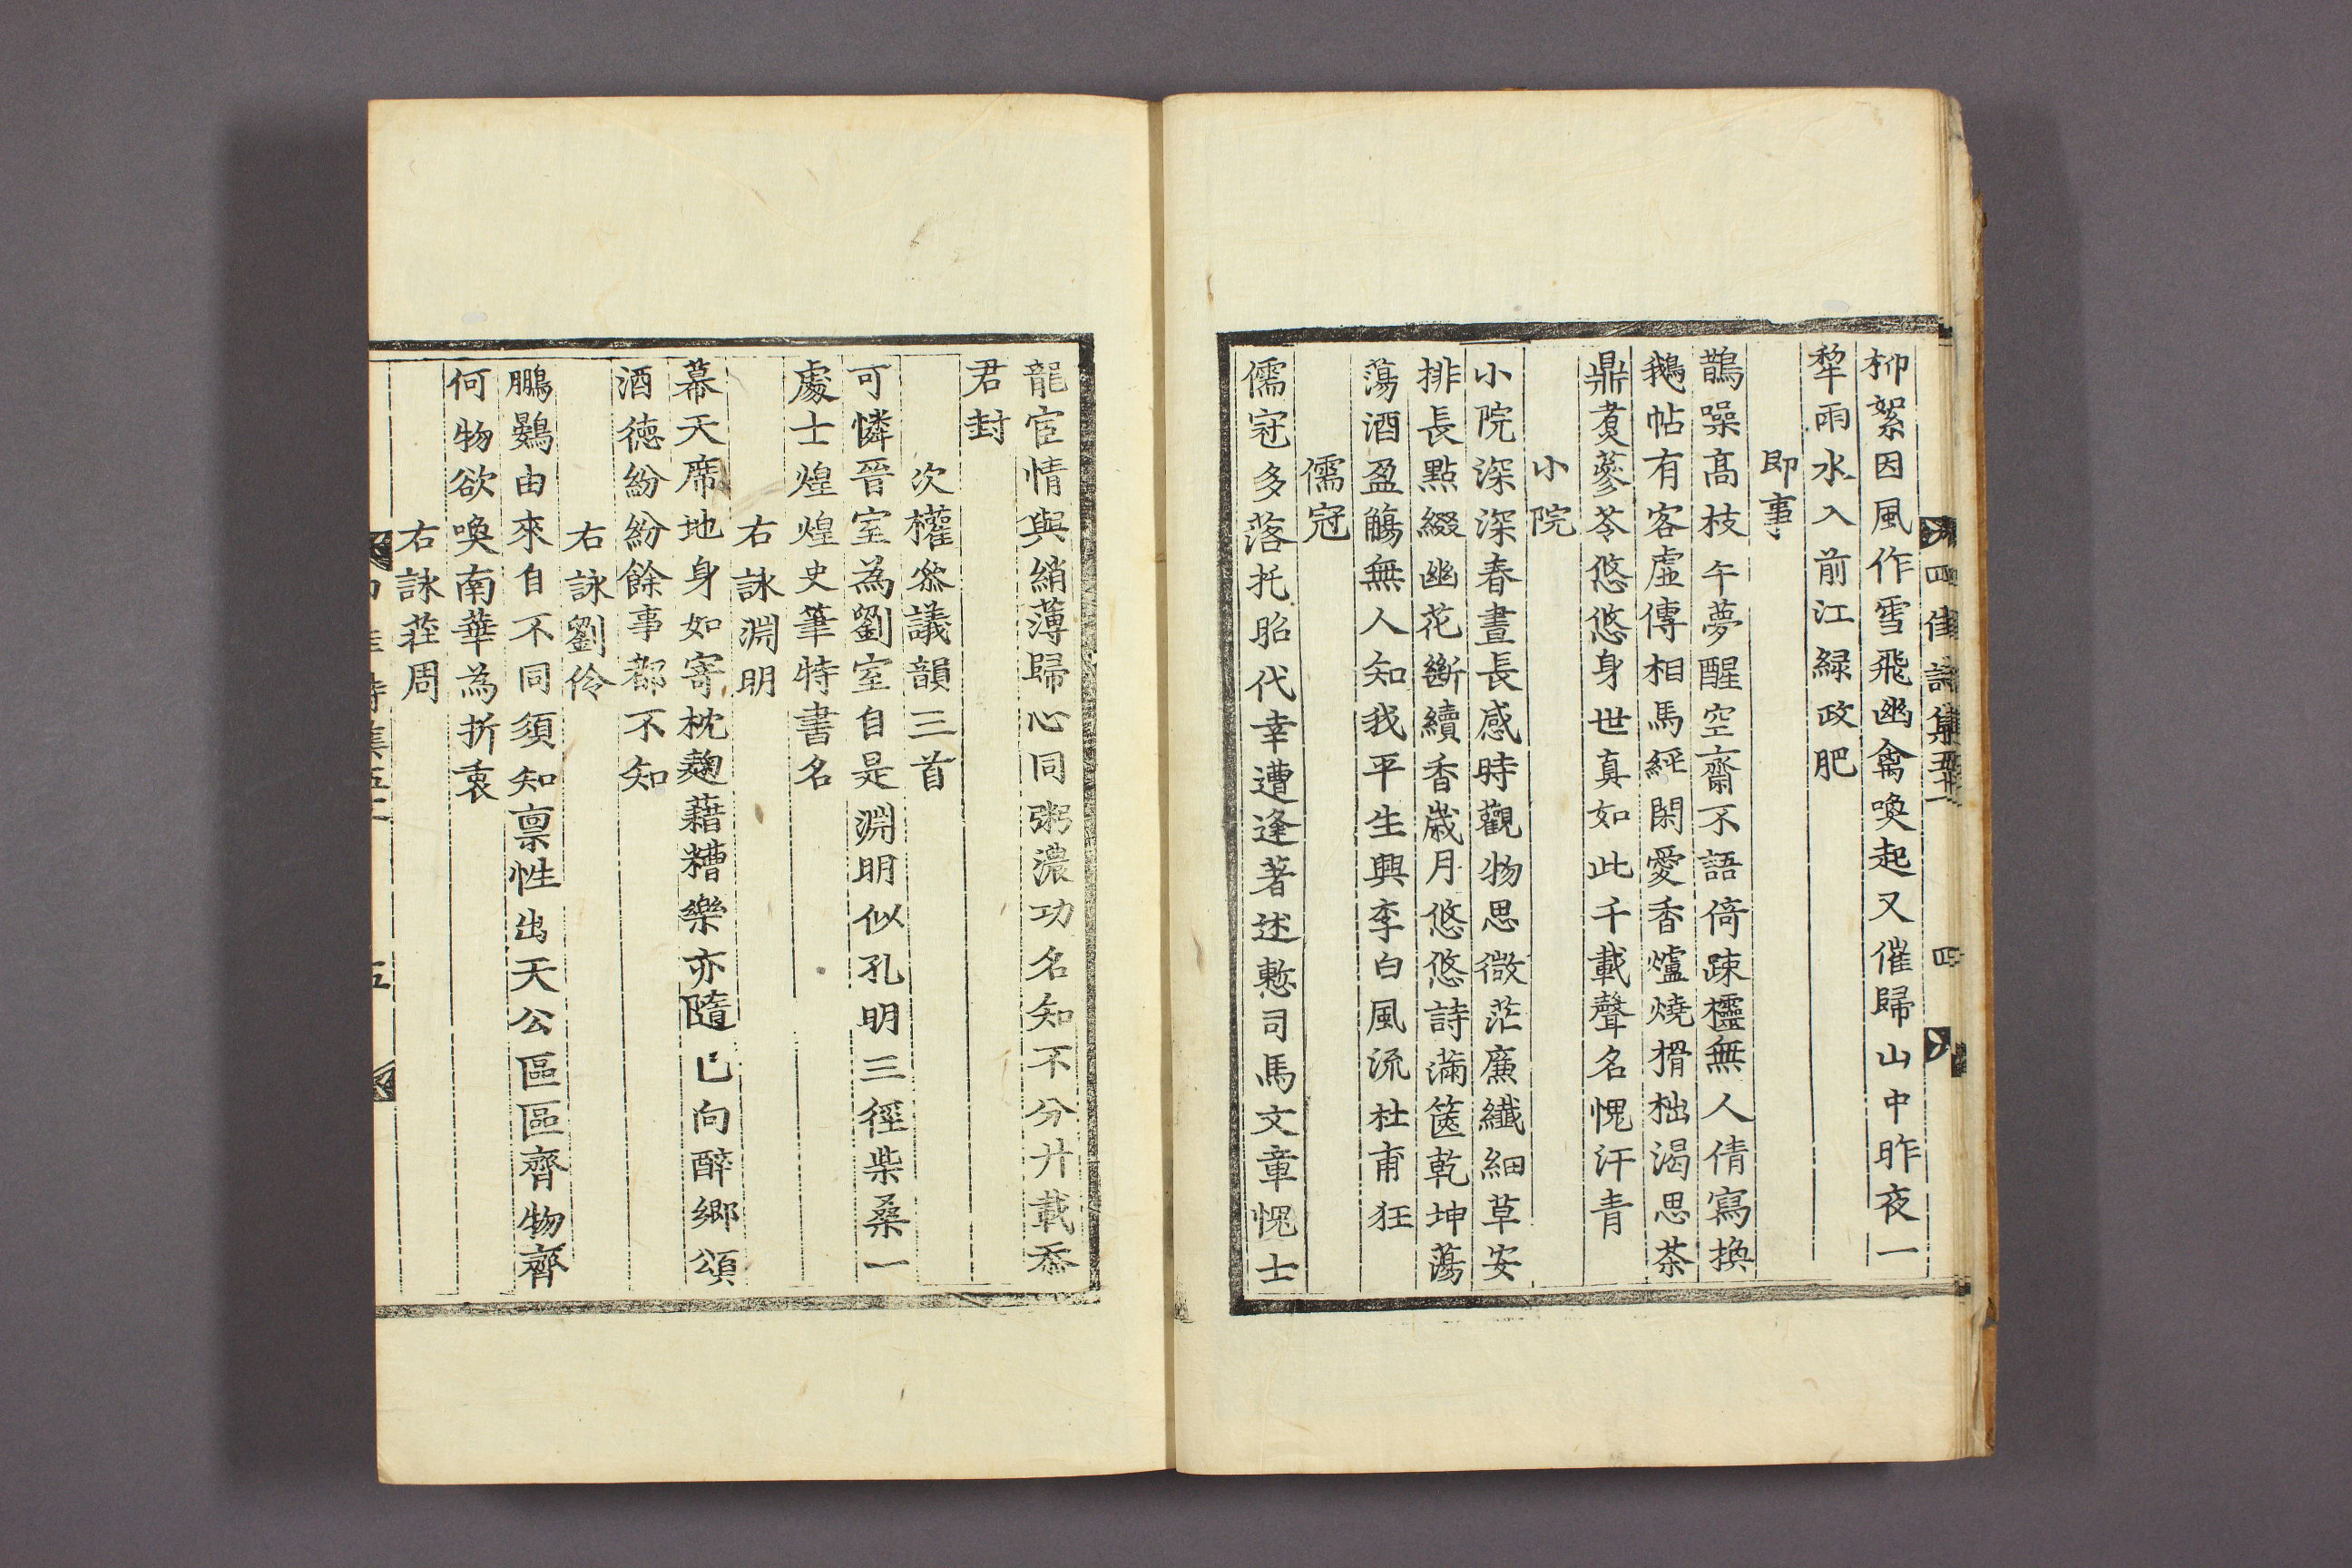 四佳詩集五十一 四
柳絮因風作雪飛幽禽喚起又催歸山中昨夜一
犂雨水入前江緑政肥
即事
鵲噪高枝午夢醒空齋不語倚疎欞無人倩寫換
鵝帖有客虛傳相馬經閑愛香爐燒榾柮渴思茶
鼎煑蔘苓悠悠身世真如此千載聲名愧汗青
小院
小院深深春晝長感時觀物思微茫廉纖細草安
排長點綴幽花斷續香歲月悠悠詩滿篋乾坤蕩
蕩酒盈觴無人知我平生興李白風流杜甫狂
儒冠
儒冠多落托昭代幸遭逢著述慙司馬文章愧士
龍宦情與綃薄歸心同粥濃功名知不分廾載忝
君封
次權叅議韻三首
可憐晉室為劉室自是淵明似孔明三徑柴桑一
處士煌煌史筆特書名
右詠淵明
幕天席地身如寄枕麴藉糟樂亦隨已向醉鄉頌
酒德紛紛餘事都不知
右詠劉伶
鵬鷃由來自不同須知稟性出天公區區齊物齊
何物欲喚南華為折衷
右詠莊周
五